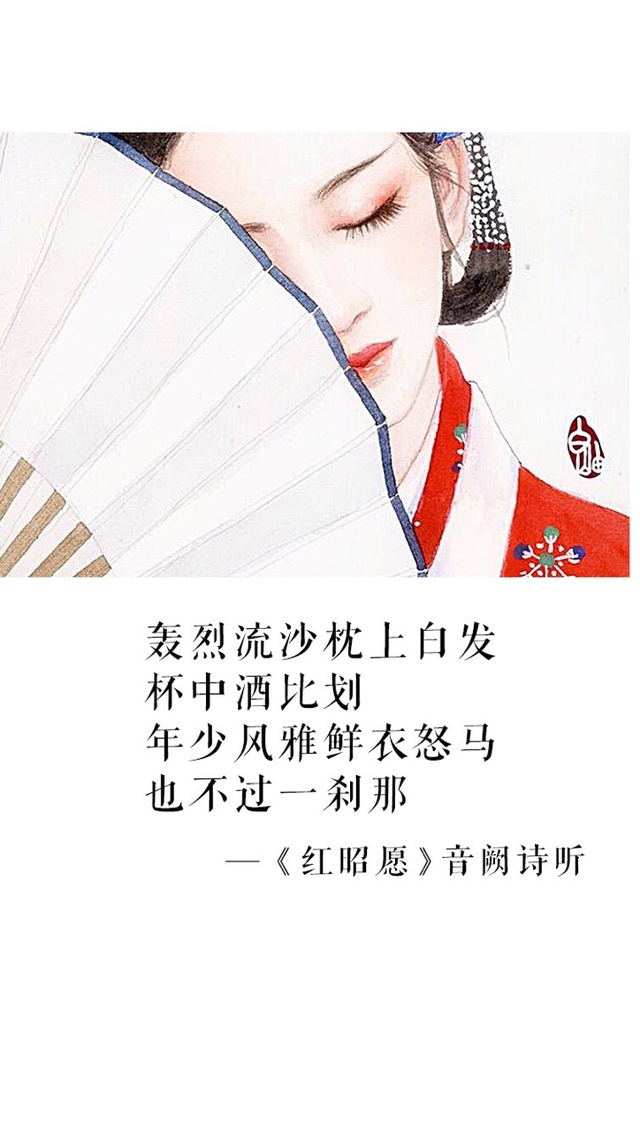 轰烈流沙枕上白发
杯中酒比划
年少风雅鲜衣怒马
也不过一刹那
—《红昭愿》音阙诗听